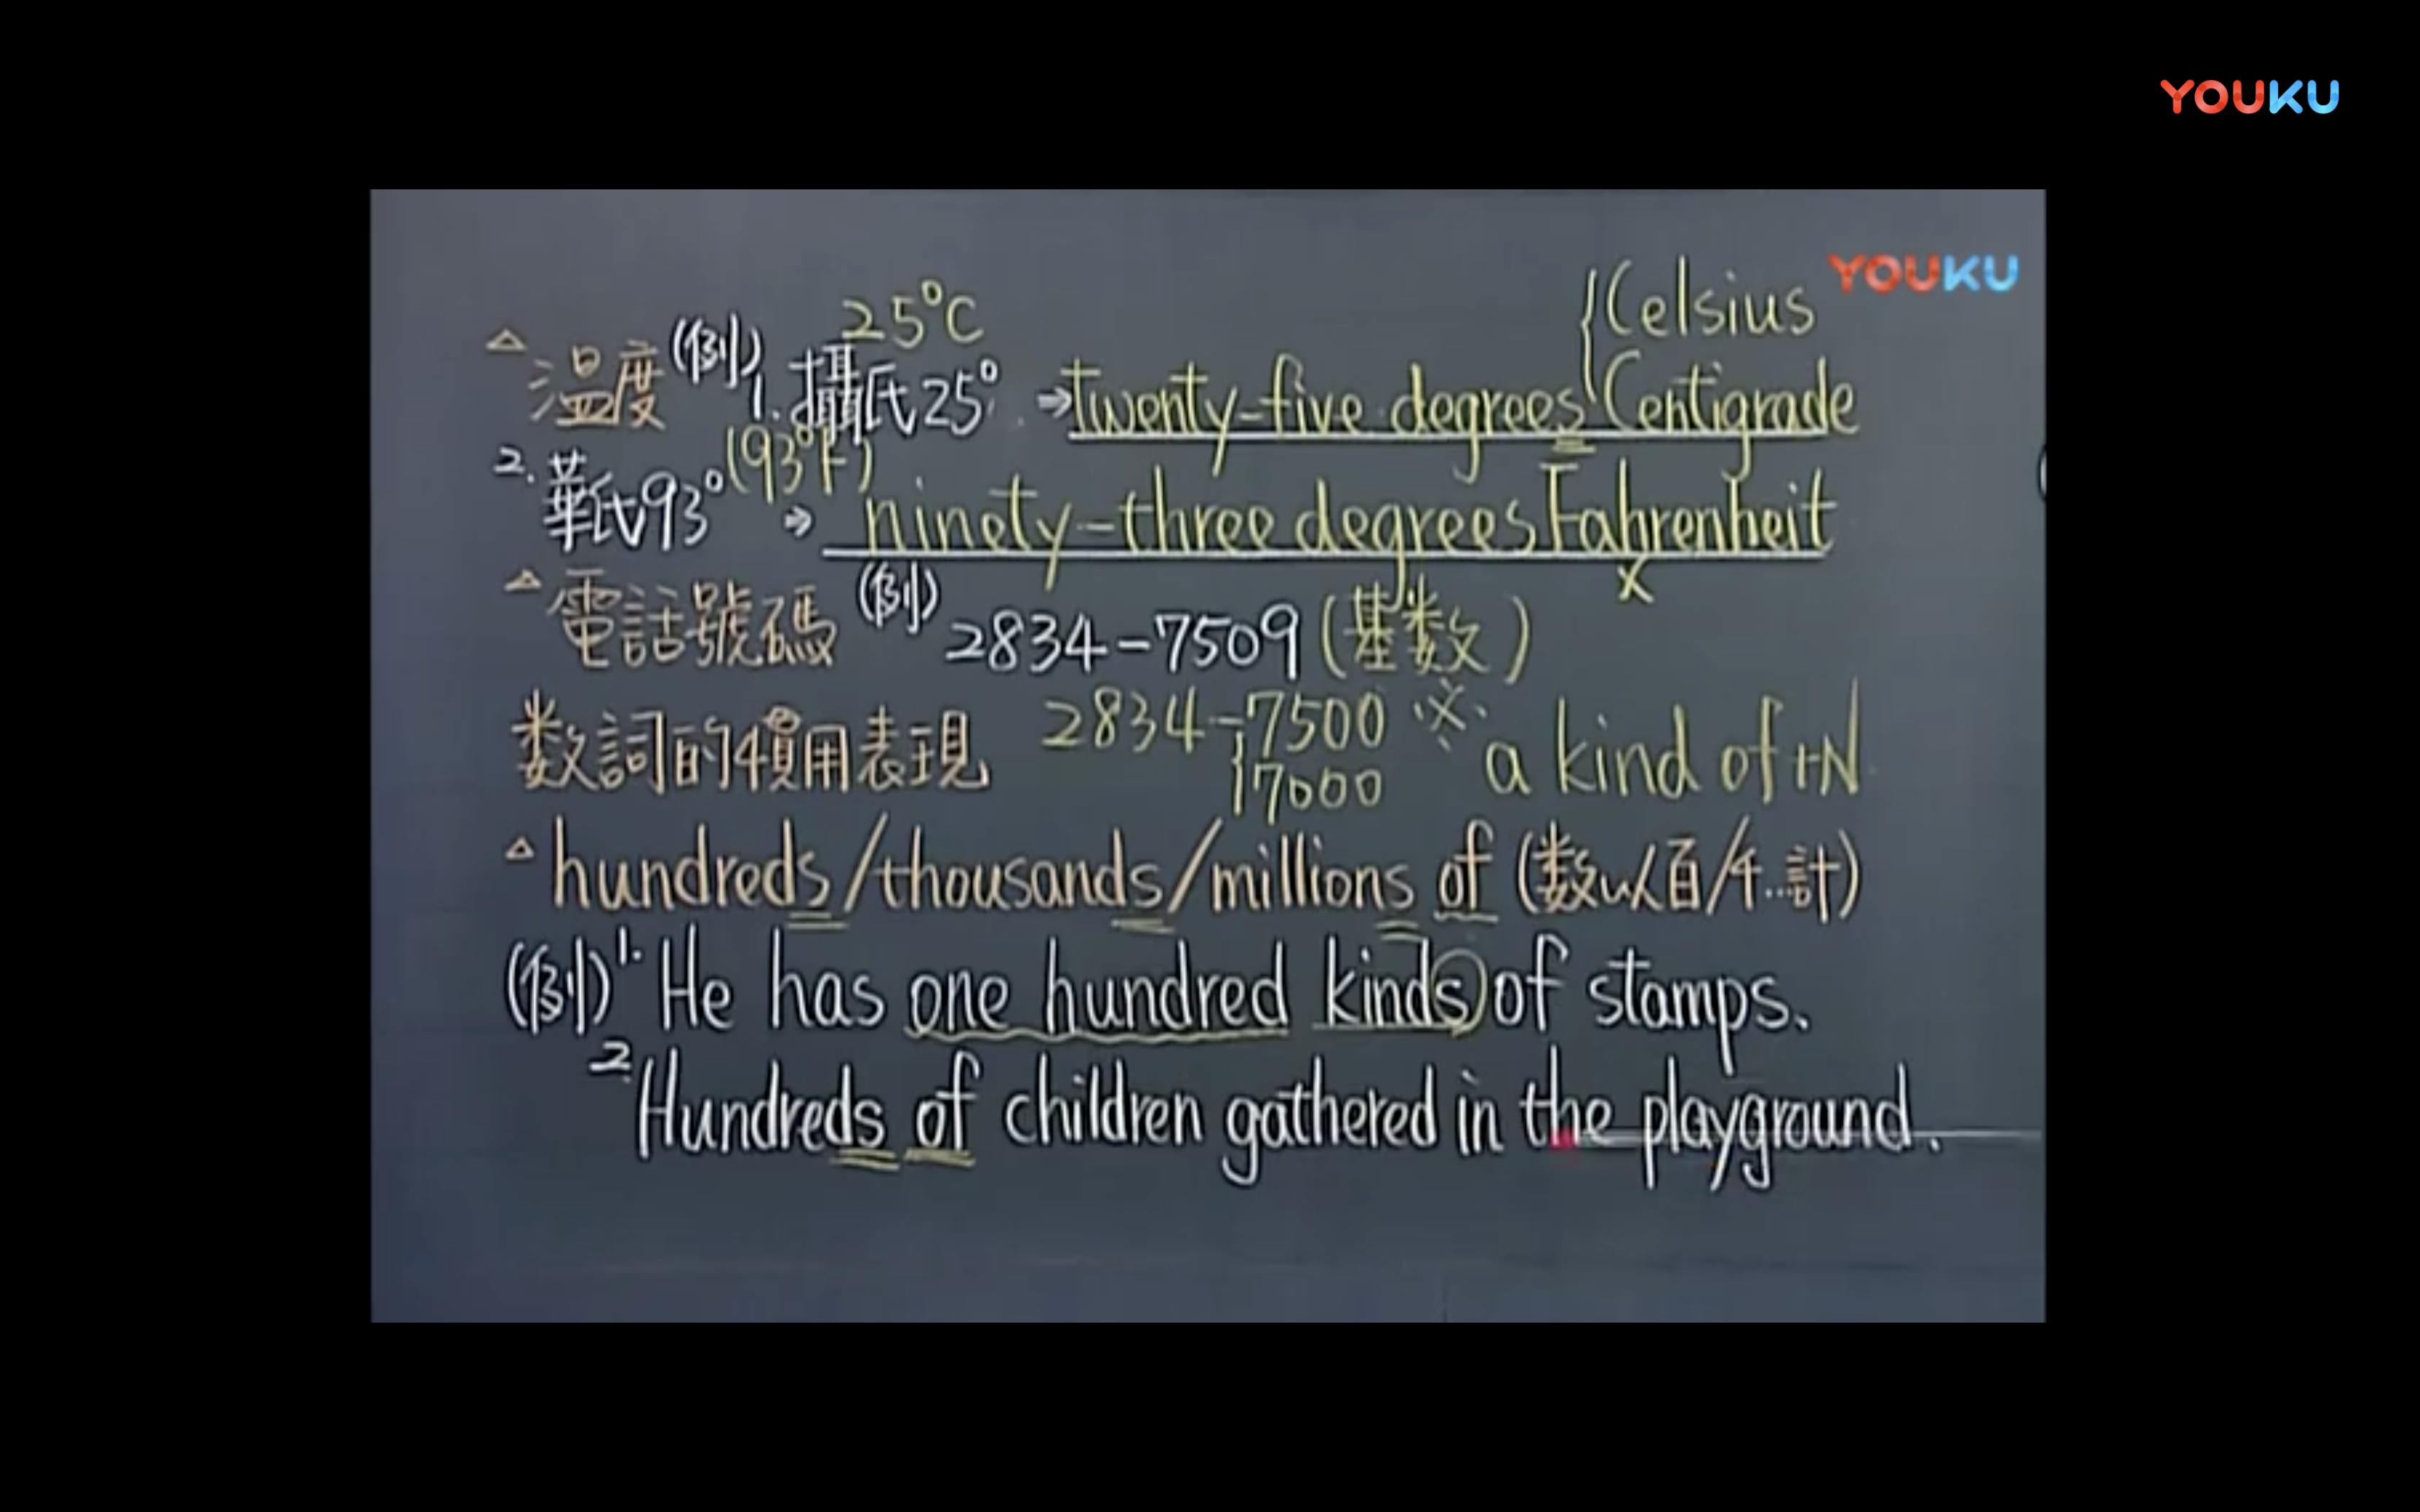 YOUKU
YOUKU
25°C
{Celsius
△溫度(例)1.攝氏25°→twenty-five degrees Centigrade
(93°F)
2.華氏93°→ninety-three degrees Fahrenheit
x
△電話號碼(例)2834-7509(基数)
数詞的慣用表現 2834-7500 ※a kind of+N
7000
△hundreds/thousands/millions of (数以百/千…計)
(例)1.He has one hundred kinds of stamps.
2.Hundreds of children gathered in the playground.